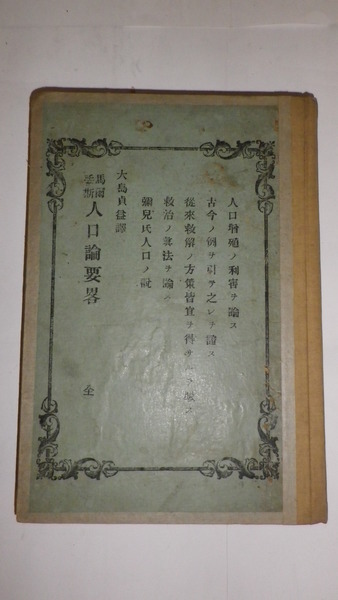 人口増殖ノ利害ヲ論ス
古今ノ例ヲ引テ之レヲ論ス
従来救解ノ方策皆宜ヲ得サルヲ駁ス
救治ノ眞法ヲ論ス
彌兒氏人口ノ説
大島貞益譯
馬爾丟斯人口論要畧 全